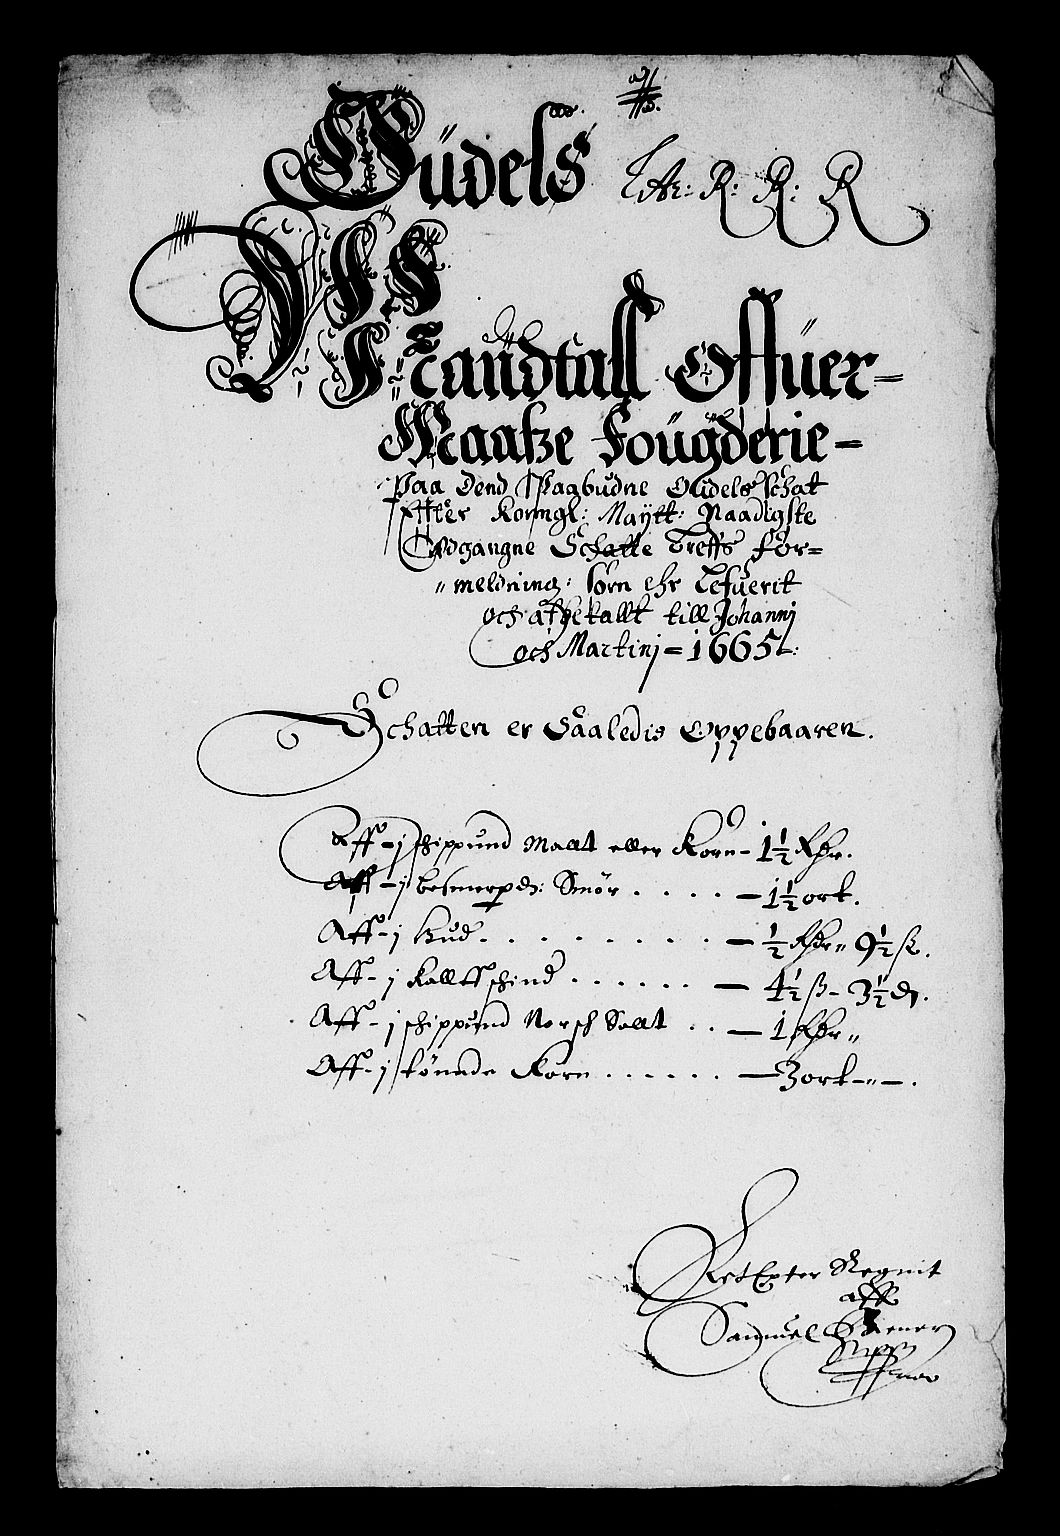 Oudels Litr: R: R: R
Mandtall Offuer
Maatze Fougderie
Paa Dend Paabudne Oudels Schat
Efter Konngl: Maÿtt: Naadigste
Udgangne Schatte Breffs For=
meldning: som ehr Lefuerit
och afbetallt till Johannj
och Martinj = 1665:
Schatten er Saaledis Oppebaaren.
Aff - j schippund Mallt eller Korn - 1½ Rdr.
Aff - j besmerpd: Smør . . . . — 1½ ort.
Aff - j Hud . . . . . . . . — ½ Rdr 9½ ß.
Aff - j Kallfschind . . . . . . — 4½ ß - 3½ d.
Aff - j schippund Norsch Sallt . . — 1 Rdr
Aff - j tønnde Korn . . . . . . — 3 ort - " - .
aff
Samuel